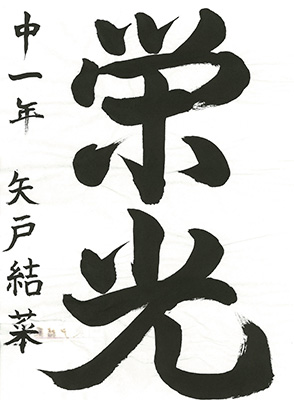 栄光
中一年 矢戸結菜